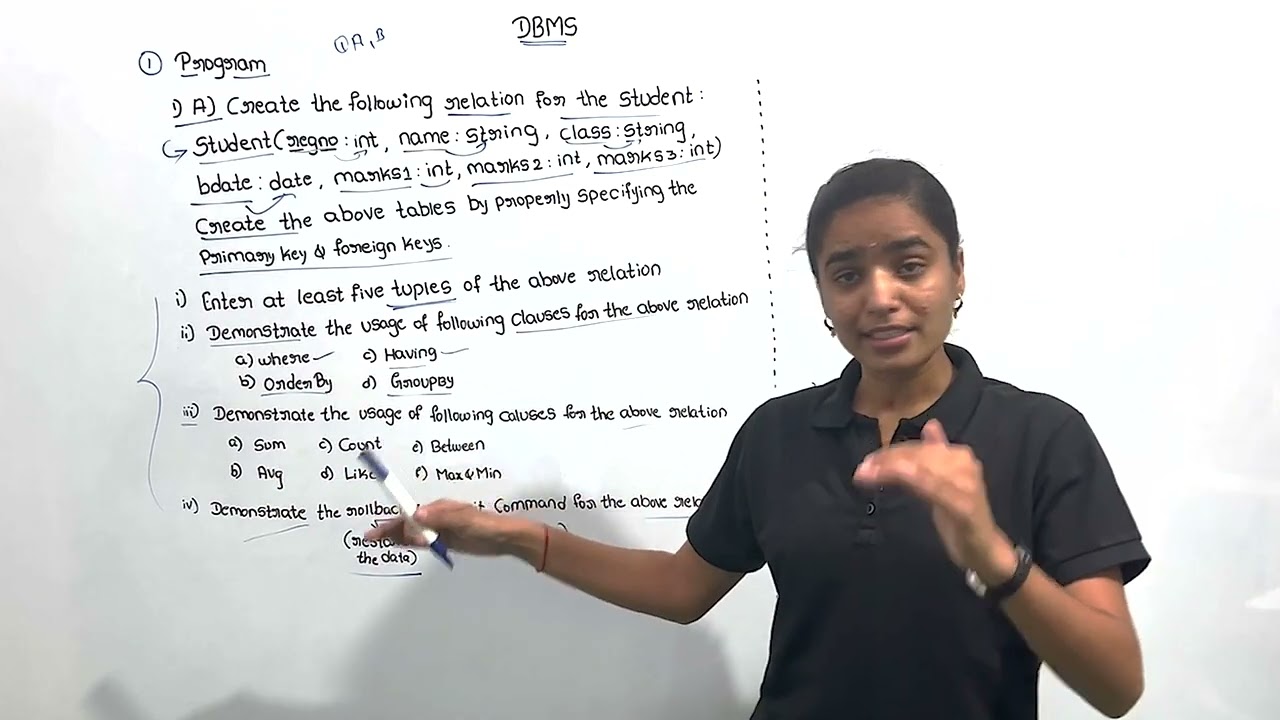 DBMS
① A, B
① Program
1) A) Create the following relation for the Student:
Student(regno: int, name: string, class: string,
bdate: date, marks1: int, marks2: int, marks3: int)
Create the above tables by properly specifying the
Primary key & foreign keys.
i) Enter at least five tuples of the above relation
ii) Demonstrate the usage of following Clauses for the above relation
a) where c) Having
b) OrderBy d) GroupBy
iii) Demonstrate the usage of following caluses for the above relation
a) Sum c) Count e) Between
b) Avg d) Like f) Max & Min
iv) Demonstrate the Command for the above
the data)